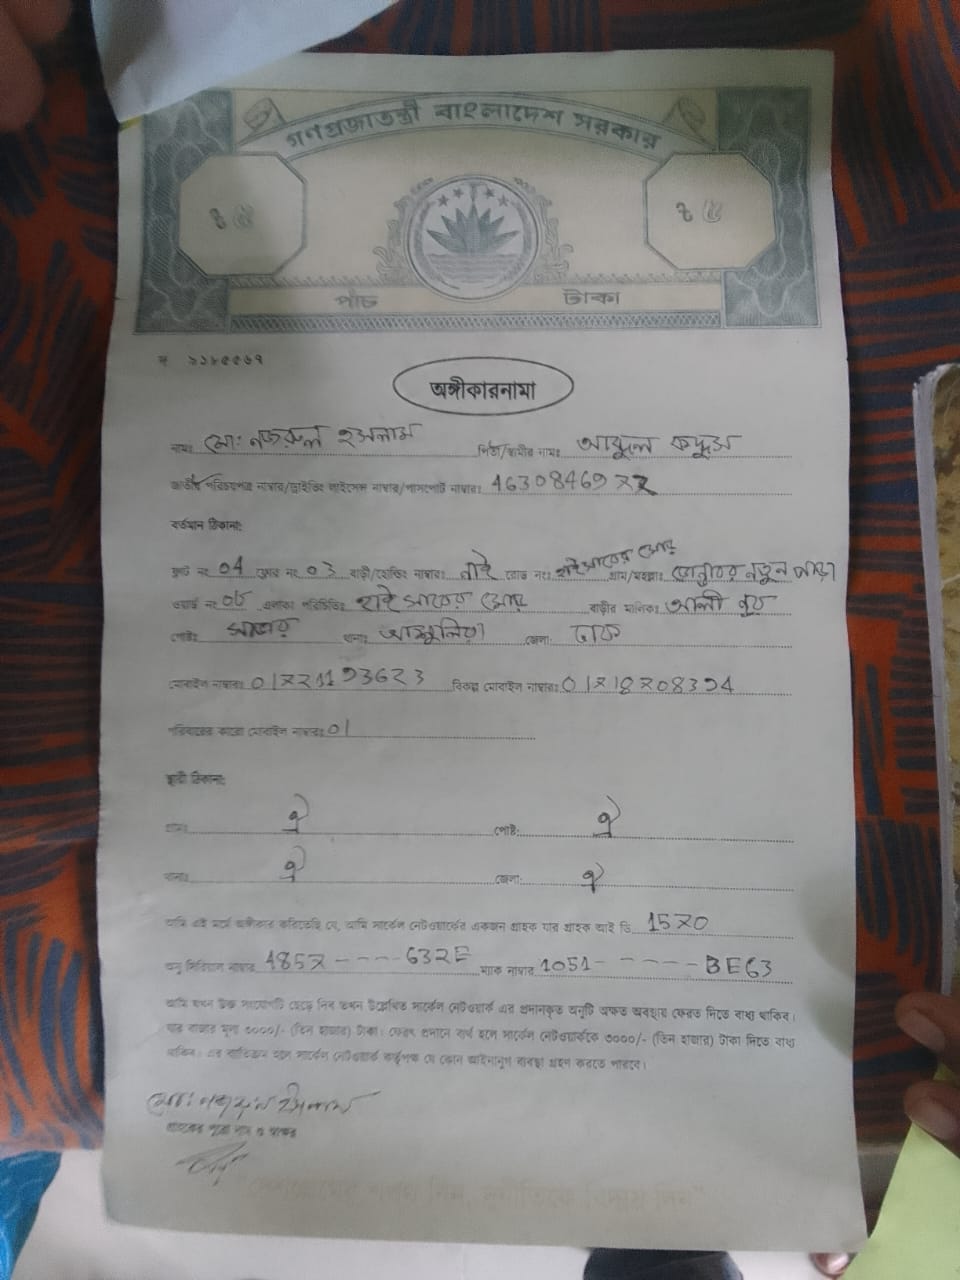 গণপ্রজাতন্ত্রী বাংলাদেশ সরকার
৳ ৫ ৳ ৫
পাঁচ টাকা
অঙ্গীকারনামা
নামঃ মোঃ নজরুল ইসলাম পিতা/স্বামীর নামঃ আব্দুল কদ্দুস
জাতীয় পরিচয়পত্র নাম্বার/ড্রাইভিং লাইসেন্স নাম্বার/পাসপোর্ট নাম্বারঃ
বর্তমান ঠিকানা:
ফ্লাট নং 04 ফ্লোর নং 03 বাড়ী/হোল্ডিং নাম্বারঃ নাই রোড নং গ্রাম/মহল্লাঃ নতুন পাড়া
ওয়ার্ড নং এলাকা পরিচিতিঃ বাড়ীর মালিকঃ আলী নুর
পোষ্টঃ সাভার থানাঃ আশুলিয়া জেলা: ঢাকা
মোবাইল নাম্বারঃ বিকল্প মোবাইল নাম্বারঃ
পরিবারের কারো মোবাইল নাম্বারঃ 01
স্থায়ী ঠিকানা:
গ্রামঃ ঐ পোষ্ট: ঐ
থানাঃ ঐ জেলা: ঐ
আমি এই মর্মে অঙ্গীকার করিতেছি যে, আমি সার্কেল নেটওয়ার্কের একজন গ্রাহক যার গ্রাহক আই ডি
অনু সিরিয়াল নাম্বার ম্যাক নাম্বার 1051- - - - - -BE63
আমি যখন উক্ত সংযোগটি ছেড়ে দিব তখন উল্লেখিত সার্কেল নেটওয়ার্ক এর প্রদানকৃত অনুটি অক্ষত অবস্থায় ফেরত দিতে বাধ্য থাকিব।
যার বাজার মূল্য ৩০০০/- (তিন হাজার) টাকা। ফেরৎ প্রদানে ব্যর্থ হলে সার্কেল নেটওয়ার্ককে ৩০০০/- (তিন হাজার) টাকা দিতে বাধ্য
থাকিব। এর ব্যতিক্রম হলে সার্কেল নেটওয়ার্ক কর্তৃপক্ষ যে কোন আইনানুগ ব্যবস্থা গ্রহণ করতে পারবে।
মোঃ নজরুল ইসলাম
গ্রাহকের পুরো নাম ও স্বাক্ষর